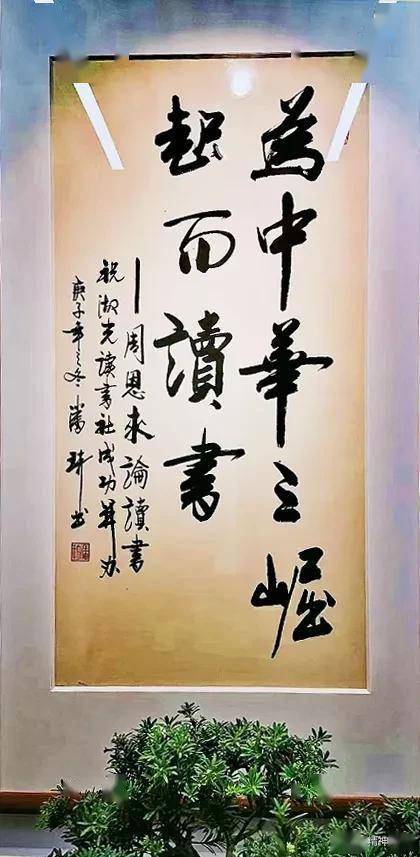 為中華之崛
起而讀書
—周恩來論讀書
祝淑光讀書社成功舉办
庚子年之冬
書
精神